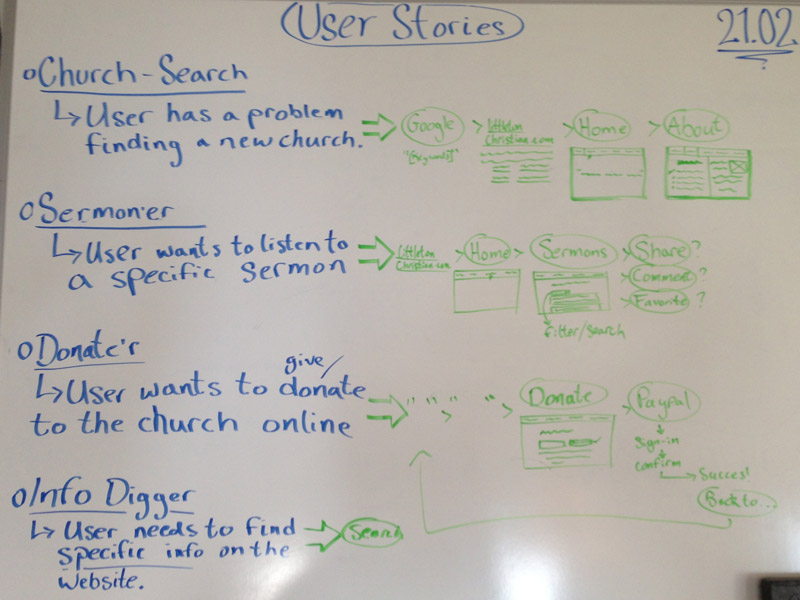 User Stories
21.02
Church-Search
↳ User has a problem
finding a new church.
⇒ Google > Littleton Christian.com > Home > About
"[Keywords]"
Sermon'er
↳ User wants to listen to
a specific Sermon
⇒ Littleton Christian.com > Home > Sermons > Share?
> Comment?
> Favorite?
filter/search
Donate'r
give/
↳ User wants to donate
to the church online
⇒ " " " > " > Donate > Paypal
Sign-in
Confirm
Succes!
Back to...
Info Digger
↳ User needs to find
specific info on the
website.
⇒ Search